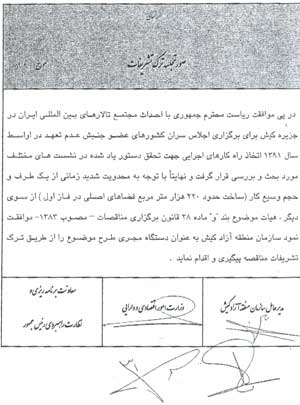 صورتجلسه ترک تشریفات
در پی موافقت ریاست محترم جمهوری با احداث مجتمع تالارهای بین المللی ایران در
جزیره کیش برای برگزاری اجلاس سران کشورهای عضو جنبش عدم تعهد در اواسط
سال ۱۳۸۱ اتخاذ راه کارهای اجرایی جهت تحقق دستور یاد شده در نشست های مختلف
مورد بحث و بررسی قرار گرفت و نهایتاً با توجه به محدویت شدید زمانی از یک طرف و
حجم وسیع کار (ساخت حدود ۲۲۰ هزار متر مربع فضاهای اصلی در فاز اول) از سوی
دیگر، هیات موضوع بند "و" ماده ۲۸ قانون برگزاری مناقصات – مصوب ۱۳۸۳- موافقت
نمود سازمان منطقه آزاد کیش به عنوان دستگاه مجری طرح موضوع را از طریق ترک
تشریفات مناقصه پیگیری و اقدام نماید.
مدیرعامل سازمان منطقه آزاد کیش
وزارت امور اقتصادی و دارایی
معاونت برنامه ریزی و
نظارت راهبردی رئیس جمهور